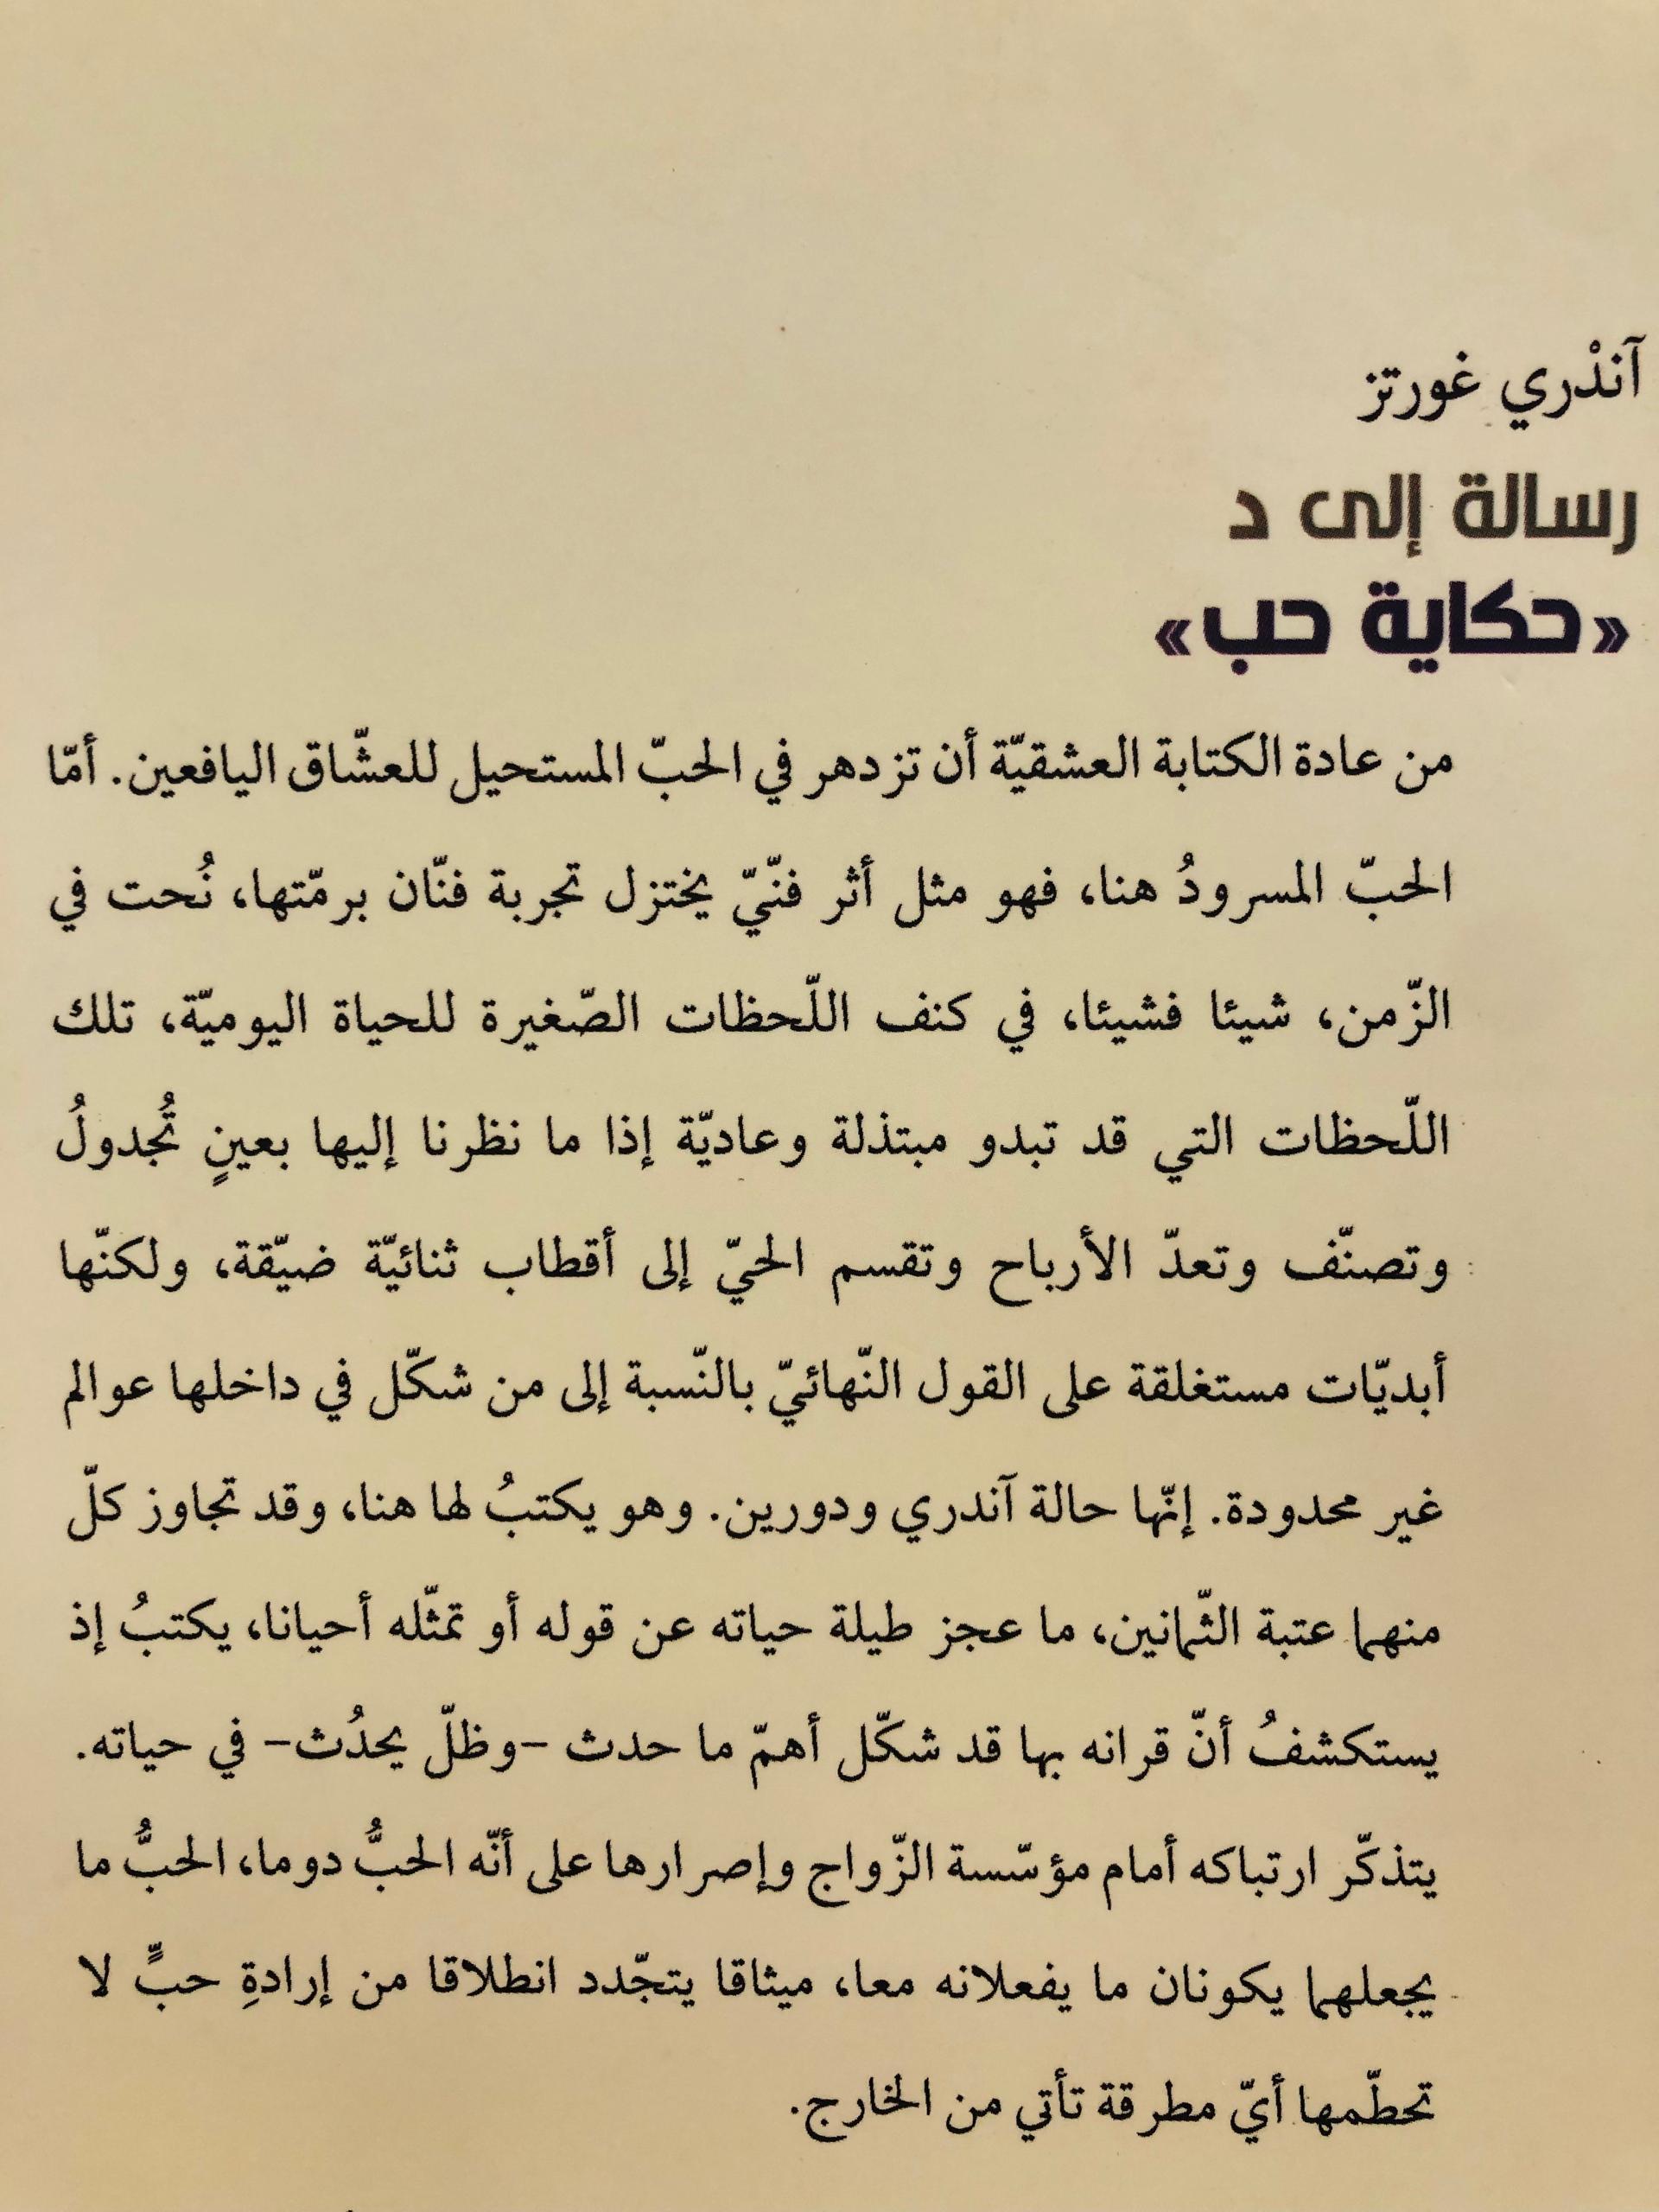 آنْدري غورتز
رسالة إلى د
«حكاية حب»
من عادة الكتابة العشقيّة أن تزدهر في الحبّ المستحيل للعشّاق اليافعين. أمّا
الحبّ المسرودُ هنا، فهو مثل أثر فنّيّ يختزل تجربة فنّان برمّتها، نُحت في
الزّمن، شيئا فشيئا، في كنف اللّحظات الصّغيرة للحياة اليوميّة، تلك
اللّحظات التي قد تبدو مبتذلة وعاديّة إذا ما نظرنا إليها بعينٍ تُجدولُ
وتصنّف وتعدّ الأرباح وتقسم الحيّ إلى أقطاب ثنائيّة ضيّقة، ولكنّها
أبديّات مستغلقة على القول النّهائيّ بالنّسبة إلى من شكّل في داخلها عوالم
غير محدودة. إنّها حالة آندري ودورين. وهو يكتبُ لها هنا، وقد تجاوز كلّ
منهما عتبة الثّمانين، ما عجز طيلة حياته عن قوله أو تمثّله أحيانا، يكتبُ إذ
يستكشفُ أنّ قرانه بها قد شكّل أهمّ ما حدث -وظلّ يحدُث- في حياته.
يتذكّر ارتباكه أمام مؤسّسة الزّواج وإصرارها على أنّه الحبُّ دوما، الحبُّ ما
يجعلهما يكونان ما يفعلانه معا، ميثاقا يتجّدد انطلاقا من إرادةِ حبٍّ لا
تحطّمها أيّ مطرقة تأتي من الخارج.